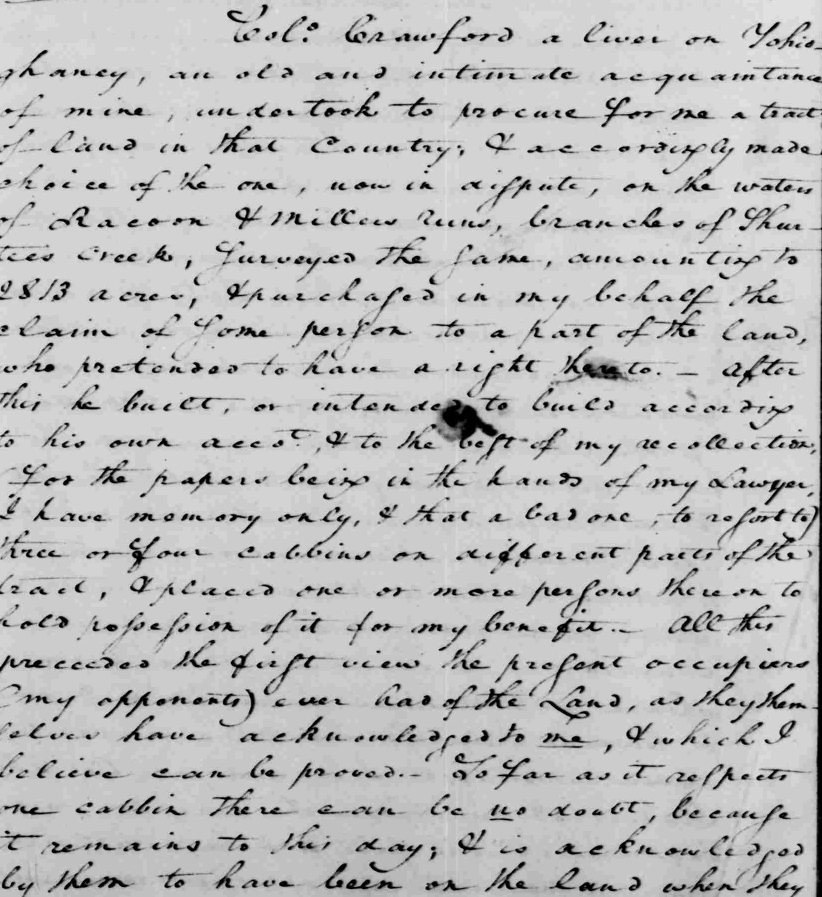 Col.o Crawford a liver on Yohio-
ghaney, an old and intimate acquaintance
of mine, undertook to procure for me a tract
of land in that Country; & accordingly made
choice of the one, now in dispute, on the waters
of Racoon & Millers runs, branches of Shur-
tees creek, surveyed the same, amounting to
2813 acres, & purchased in my behalf the
claim of some person to a part of the land,
who pretended to have a right thereto. – After
this he built, or intended to build according
to his own acct, & to the best of my recollection,
(for the papers being in the hands of my Lawyer,
I have memory only, & that a bad one, to resort to)
three or four cabbins on different parts of the
tract, & placed one or more persons thereon to
hold possession of it for my benefit. – All this
preceeded the first view the present occupiers
(my opponents) ever had of the Land, as they them-
selves have acknowledged to me, & which I
believe can be proved. – So far as it respects
one cabbin there can be no doubt, because
it remains to this day; & is acknowledged
by them to have been on the land when they